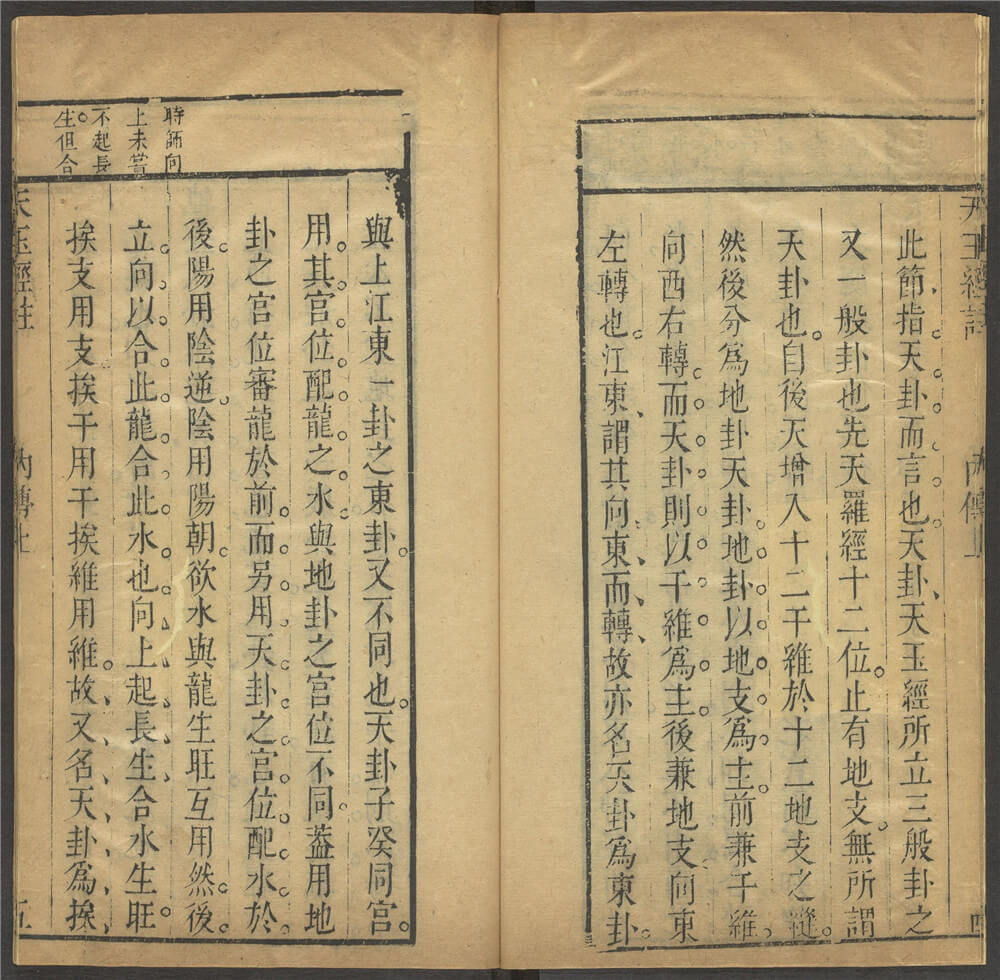 天玉經註
內傳上
此節指天卦而言也天卦天玉經所立三般卦之
又一般卦也先天羅經十二位止有地支無所謂
天卦也自後天增入十二干維於十二地支之縫
然後分爲地卦天卦地卦以地支爲主前兼干維
向西右轉而天卦則以干維爲主後兼地支向東
左轉也江東謂其向東而轉故亦名天卦爲東卦
時師向
上未嘗
不起長
生但合
與上江東一卦之東卦又不同也天卦子癸同宮
用其宮位配龍之水與地卦之宮位不同葢用地
卦之宮位審龍於前而另用天卦之宮位配水於
後陽用陰逆陰用陽朝欲水與龍生旺互用然後
立向以合此龍合此水也向上起長生合水生旺
挨支用支挨干用干挨維用維故又名天卦爲挨
天玉經註
內傳上
五